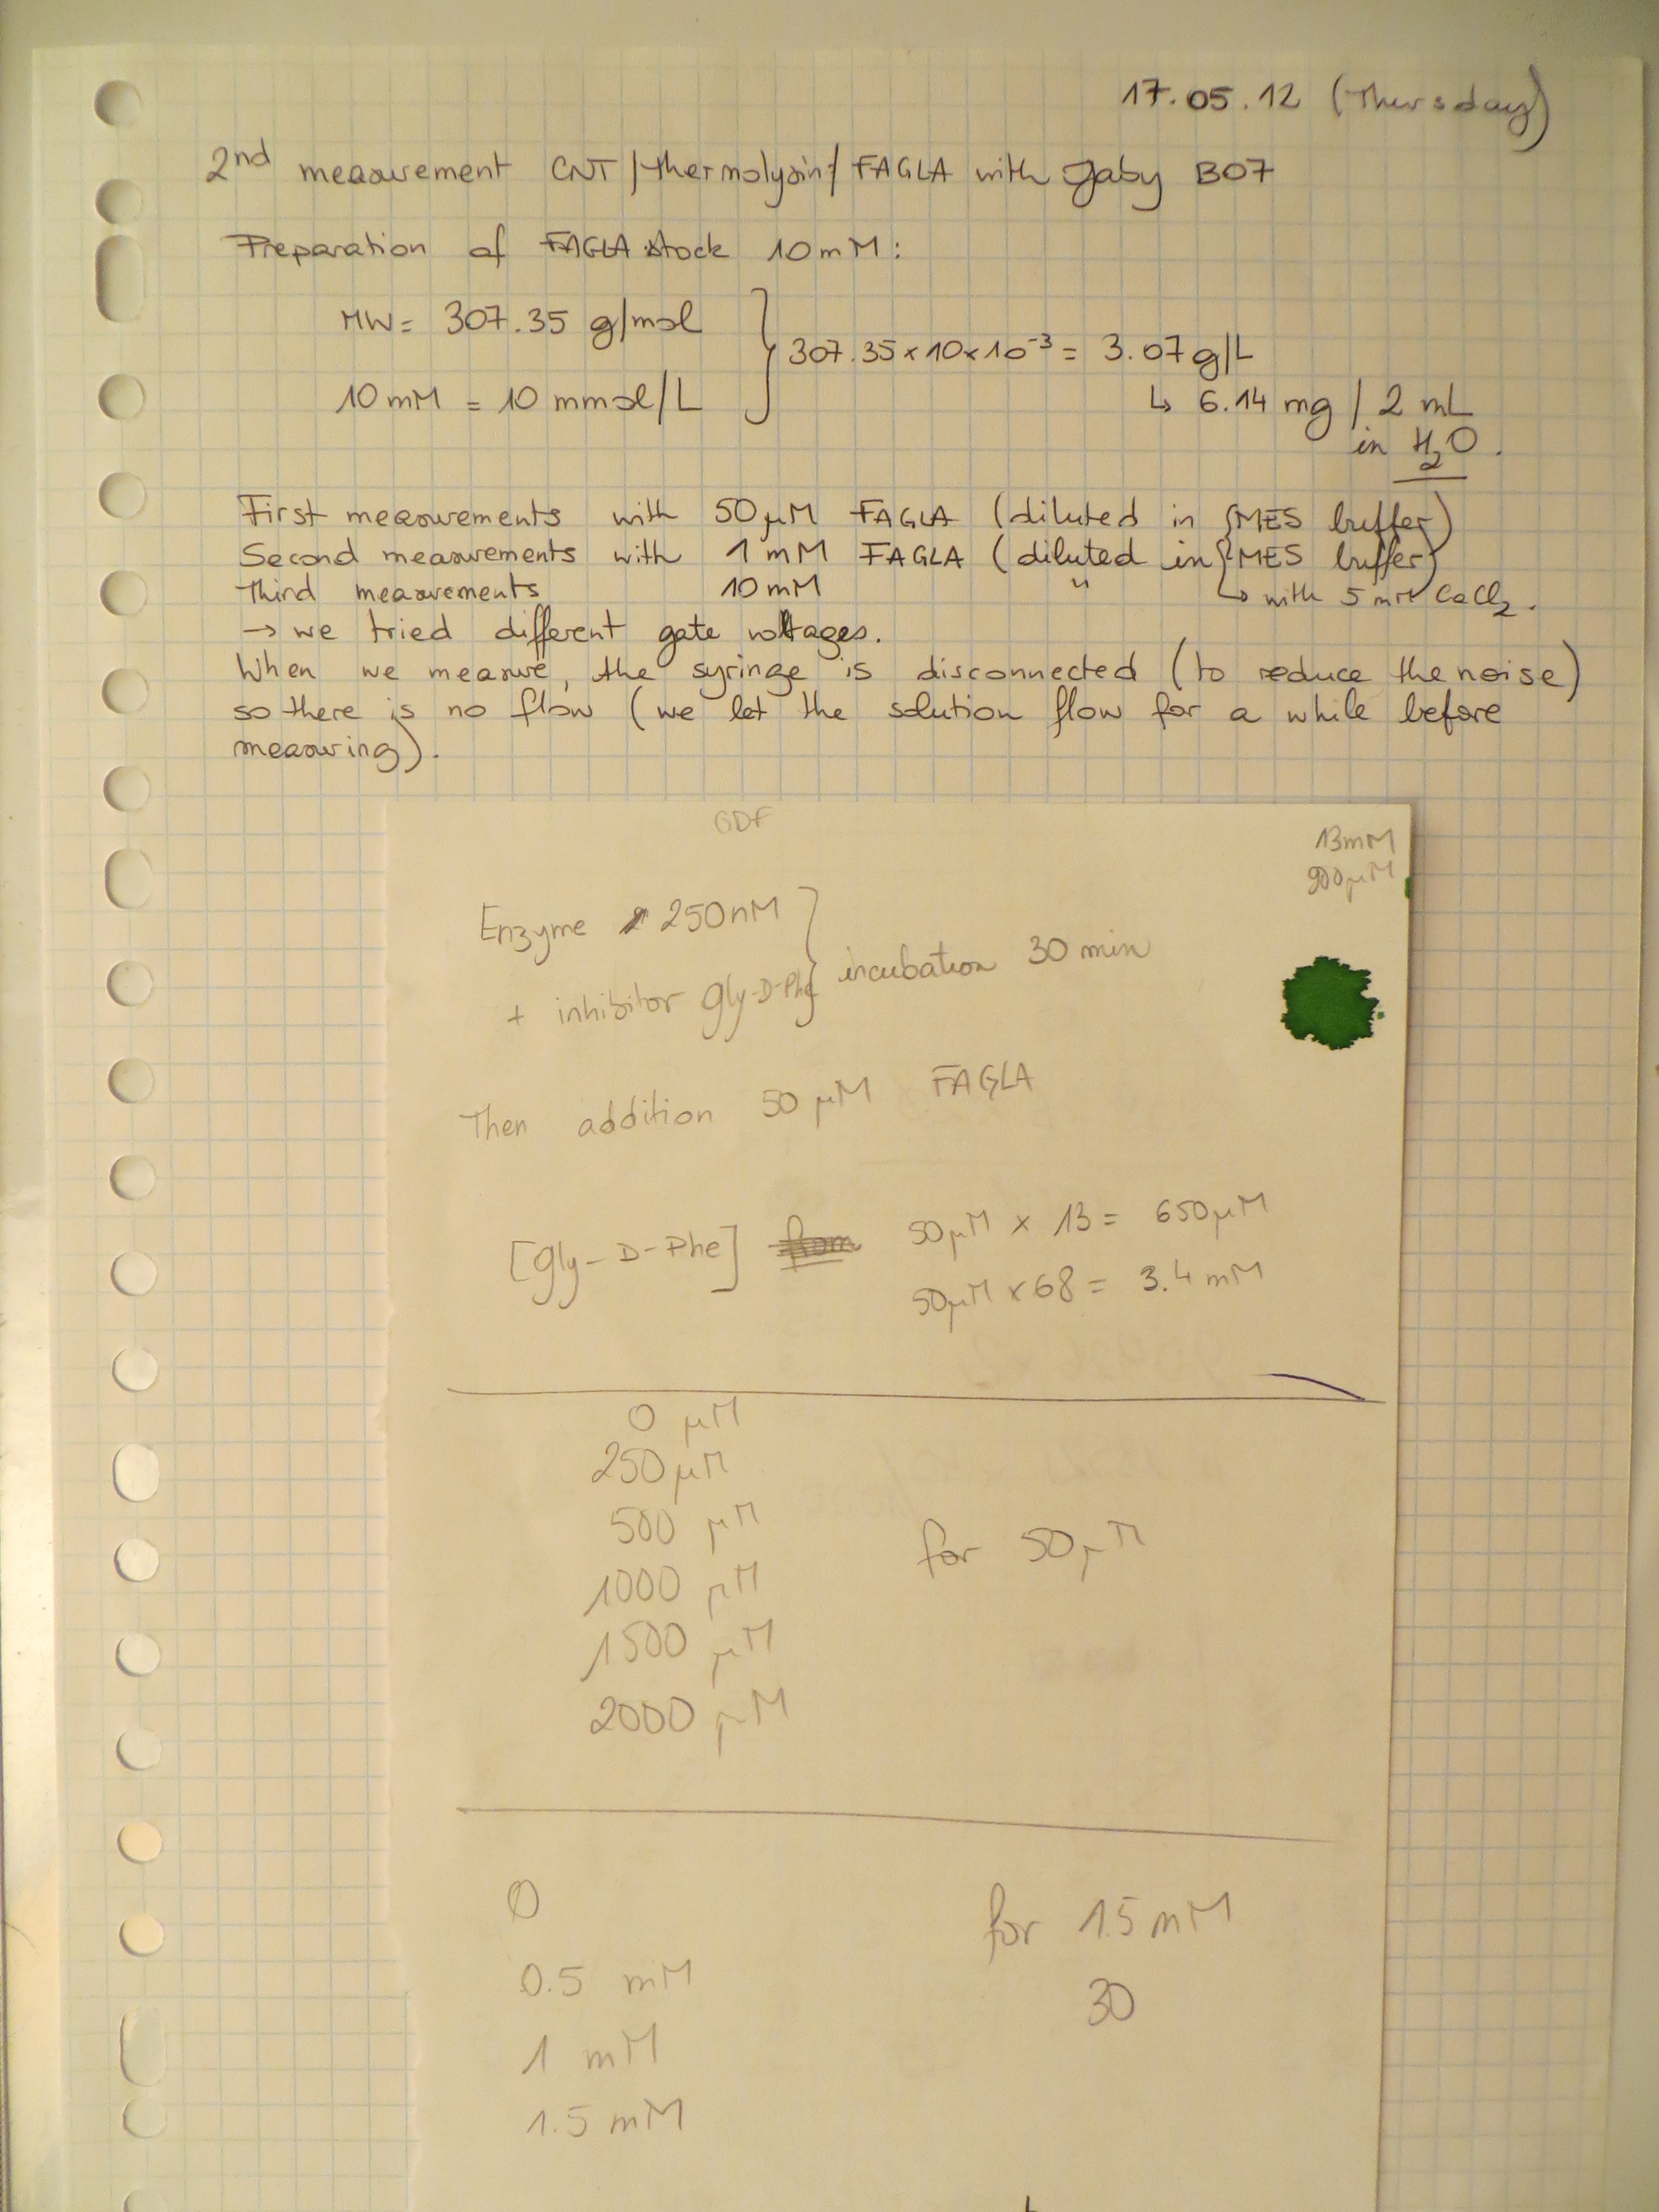 17.05.12 (Thursday)
2nd measurement CNT/thermolysin/FAGLA with Gaby B07
Preparation of FAGLA stock 10 mM:
MW = 307.35 g/mol
307.35 × 10 × 10⁻³ = 3.07 g/L
10 mM = 10 mmol/L
↳ 6.14 mg / 2 mL
in H₂O.
First measurements with 50 μM FAGLA (diluted in MES buffer)
Second measurements with 1 mM FAGLA (diluted in MES buffer)
Third measurements 10 mM " ↳ with 5 mM CaCl₂.
→ we tried different gate voltages.
When we measure, the syringe is disconnected (to reduce the noise)
so there is no flow (we let the solution flow for a while before
measuring).
GDF
13 mM
900 μM
Enzyme 250 nM
+ inhibitor Gly-D-Phe } incubation 30 min
Then addition 50 μM FAGLA
[Gly-D-Phe] from 50 μM × 13 = 650 μM
50 μM × 68 = 3.4 mM
0 μM
250 μM
500 μM
for 50 μM
1000 μM
1500 μM
2000 μM
0
for 1.5 mM
0.5 mM
30
1 mM
1.5 mM